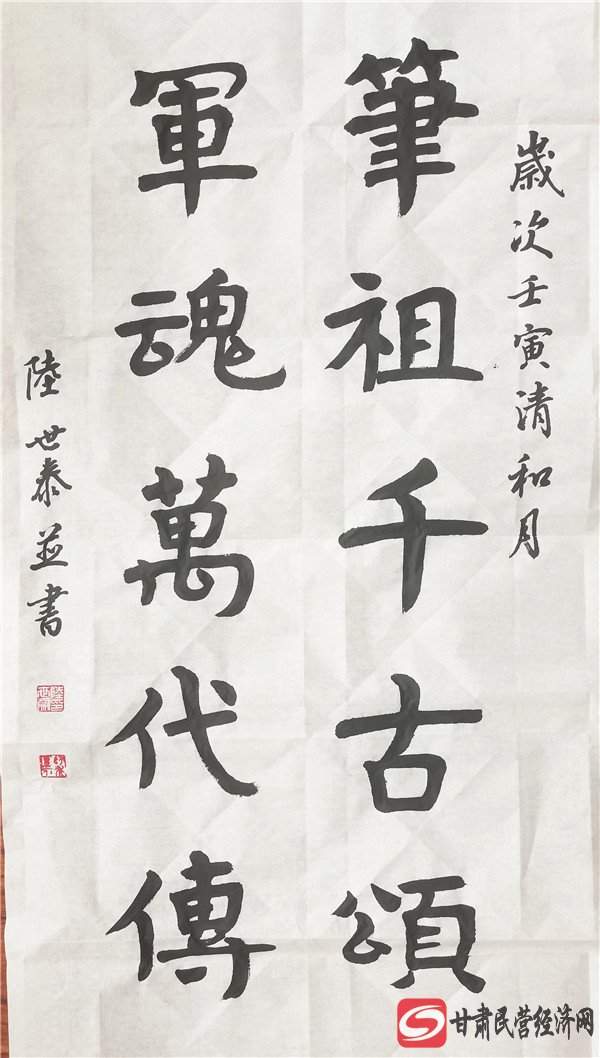 歲次壬寅清和月
筆祖千古頌
軍魂萬代傳
陸世泰並書
甘肃民营经济网